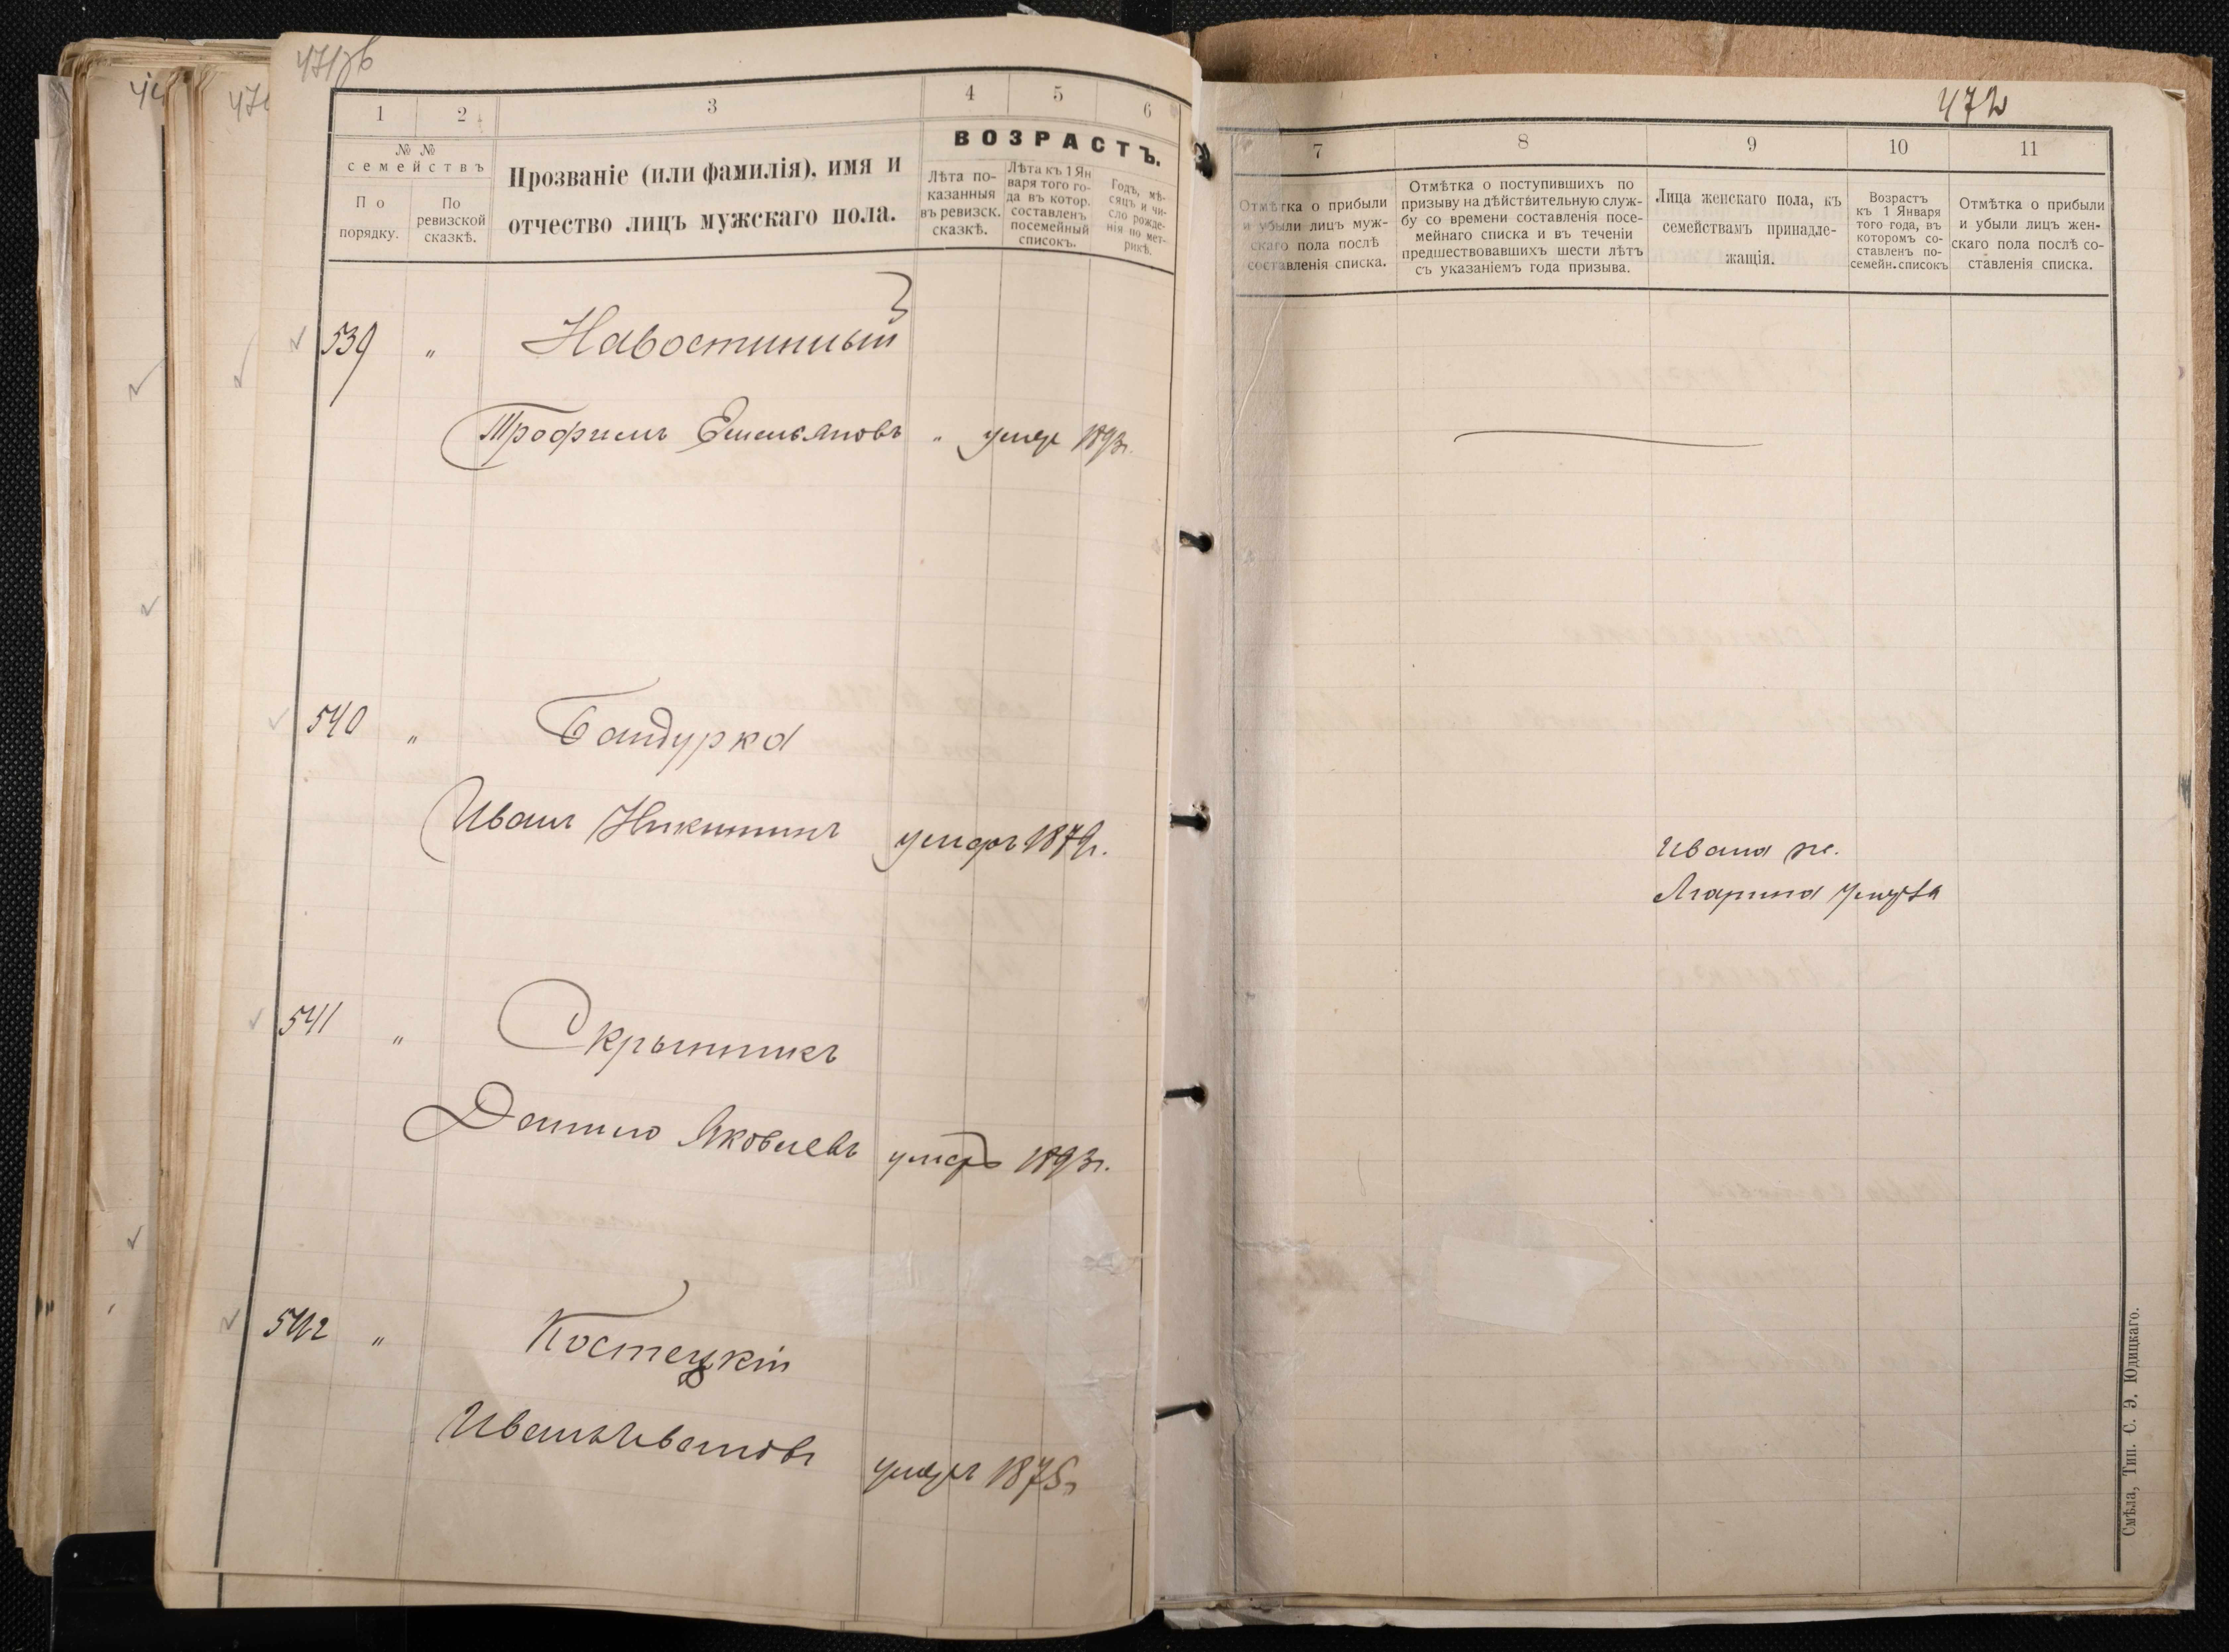 471об
1
2
3
4
5
6
№ №
семействъ
По
порядку.
По
ревизской
сказкѣ.
Прозваніе (или фамилія), имя и
отчество лицъ мужскаго пола.
ВОЗРАСТЪ.
Лѣта по-
казанныя
въ ревизск.
сказкѣ.
Лѣта къ 1 Ян
варя того го-
да въ котор.
составленъ
посемейный
списокъ.
Годъ, мѣ-
сяцъ и чи-
сло рожде-
нія по мет-
рикѣ.
539 " Навостинный
Трофимъ Емельяновъ " умеръ 1893г.
540 " Бандурка
Иванъ Никитинъ умеръ 1879г.
541 " Скрынникъ
Данило Яковлевъ умеръ 1893г.
542 " Костецкій
Иванъ Ивановъ умеръ 1875г
472
7
8
9
10
11
Отмѣтка о прибыли
и убыли лицъ муж-
скаго пола послѣ
составленія списка.
Отмѣтка о поступившихъ по
призыву на дѣйствительную служ-
бу со времени составленія посе-
мейнаго списка и въ теченіи
предшествовавшихъ шести лѣтъ
съ указаніемъ года призыва.
Лица женскаго пола, къ
семействамъ принадле-
жащія.
Возрастъ
къ 1 Января
того года, въ
которомъ со-
ставленъ по-
семейн. списокъ
Отмѣтка о прибыли
и убыли лицъ жен-
скаго пола послѣ со-
ставленія списка.
Ивана ж.
Марина
Смѣла, Тип. С. Э. Юдицкаго.